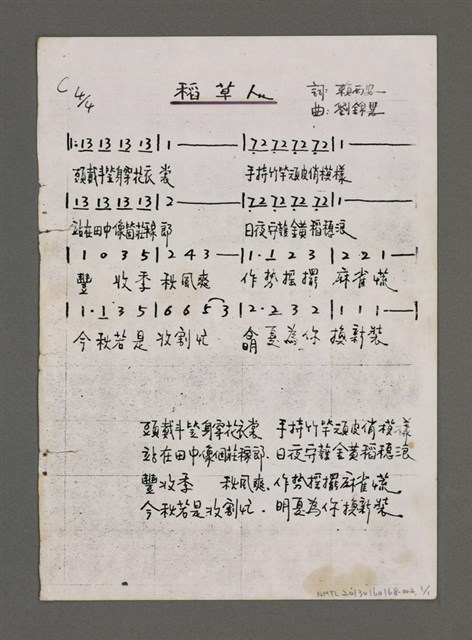 C 4/4
稻草人
詞: 賴西安
曲: 劉錦墨
|1·13 13 13 13|1———|72 72 72 72|1———|
頭戴斗笠身穿花衣裳 手持竹竿頑皮俏模樣
|13 13 13 13|2———|72 72 72 72|1———|
站在田中像個莊稼郎 日夜守護金黃稻穗浪
|1 0 3 5|2 4 3—|1·1 2 3|2 2 1—|
豐 收季 秋風爽 作勢搖擺 麻雀慌
|1·1 3 5|6 6 5 3|2·2 3 2|1 1 1—|
今秋若是 收割忙 明夏為你 換新裝
頭戴斗笠身穿花衣裳 手持竹竿頑皮俏模樣
站在田中像個莊稼郎. 日夜守護金黃稻穗浪
豐收季 秋風爽. 作勢搖擺麻雀慌
今秋若是收割忙. 明夏為你換新裝
NMTL 20130160168 1/1